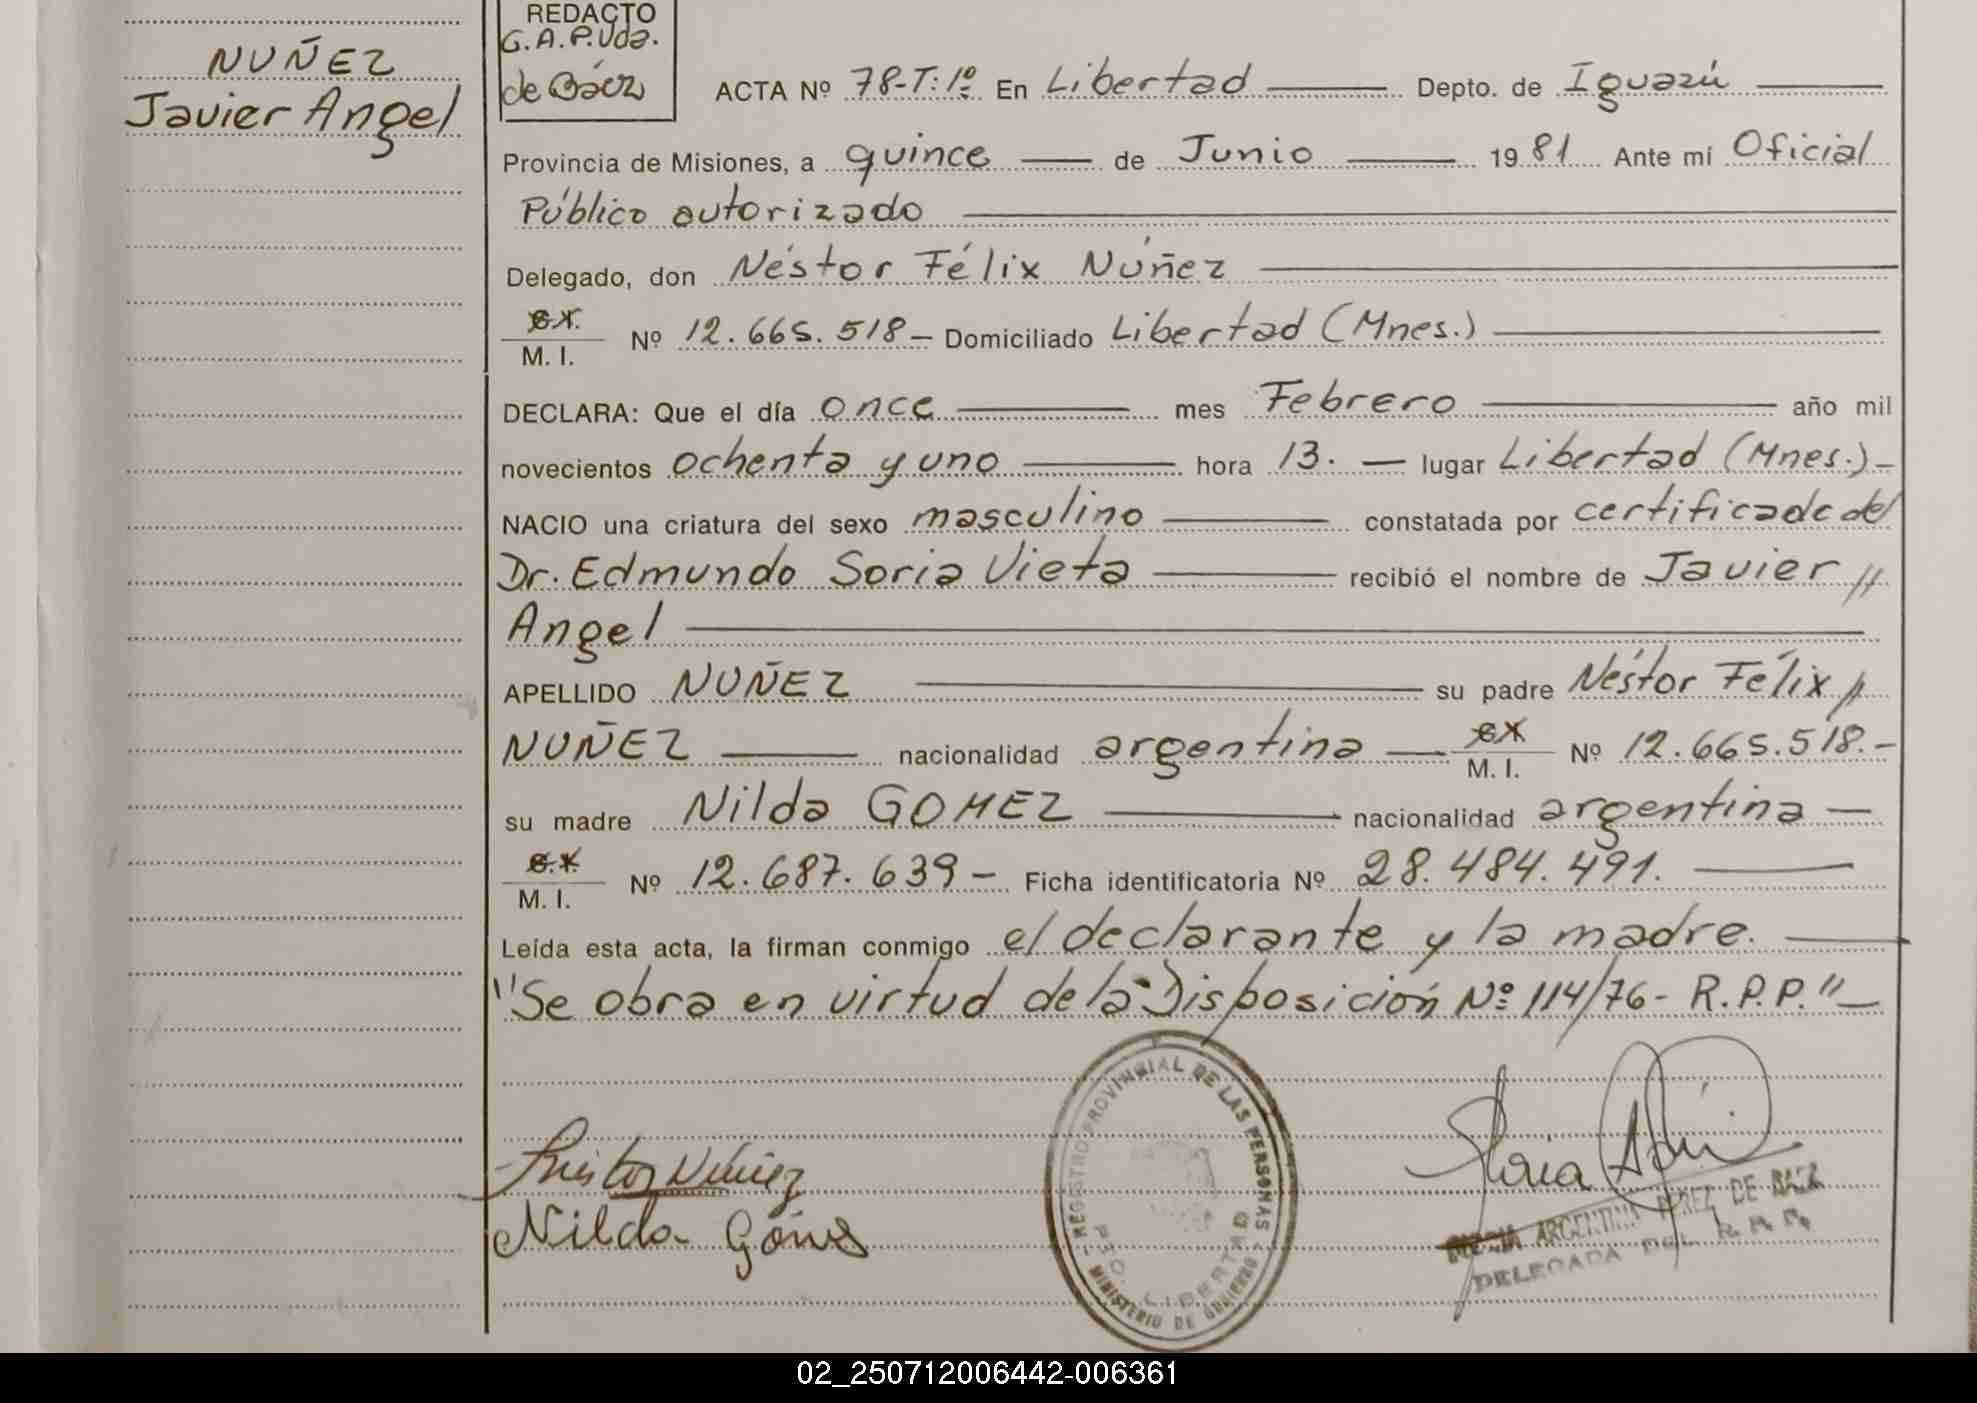 NUÑEZ
Javier Angel
REDACTO
G.A.P.Vda.
de Báez
ACTA Nº 78-T:1º En Libertad Depto. de Iguazú
Provincia de Misiones, a quince de Junio 1981 Ante mí Oficial
Público autorizado
Delegado, don Néstor Félix Núñez
M. I. Nº 12.665.518- Domiciliado Libertad (Mnes.)
DECLARA: Que el día once mes Febrero año mil
novecientos ochenta y uno hora 13. lugar Libertad (Mnes.)-
NACIO una criatura del sexo masculino constatada por certificado del
Dr. Edmundo Soria Vieta recibió el nombre de Javier //
Angel
APELLIDO NUÑEZ su padre Néstor Félix //
NUÑEZ nacionalidad argentina M. I. Nº 12.665.518.-
su madre Nilda GOMEZ nacionalidad argentina
M. I. Nº 12.687.639- Ficha identificatoria Nº 28.484.491.
Leída esta acta, la firman conmigo el declarante y la madre.
"Se obra en virtud de la Disposición Nº 114/76- R.P.P."
REGISTRO PROVINCIAL DE LAS PERSONAS
MINISTERIO DE GOBIERNO
LIBERTAD
Nestor Núñez
Nilda Gómez
ARGENTINA PEREZ DE BAEZ
DELEGADA DEL R.P.P.
02_250712006442-006361